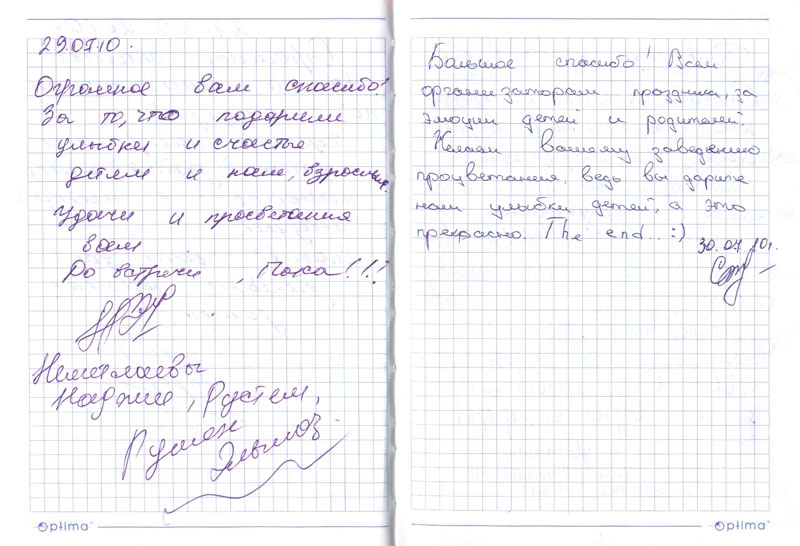 29.07.10.
Огромное вам спасибо!
За то, что подарили
улыбки и счастье
детям и нам, взрослым.
Удачи и просветания
всем
До встречи, Пока!!!
Наджие, Рустем,
Эльмаз
Optima
Большое спасибо! Всем
организаторам праздника, за
эмоции детей и родителей.
Желаем вашему заведению
процветания, ведь вы дарите
нам улыбки детей, а это
прекрасно. The end... :)
30.07.10г.
Optima